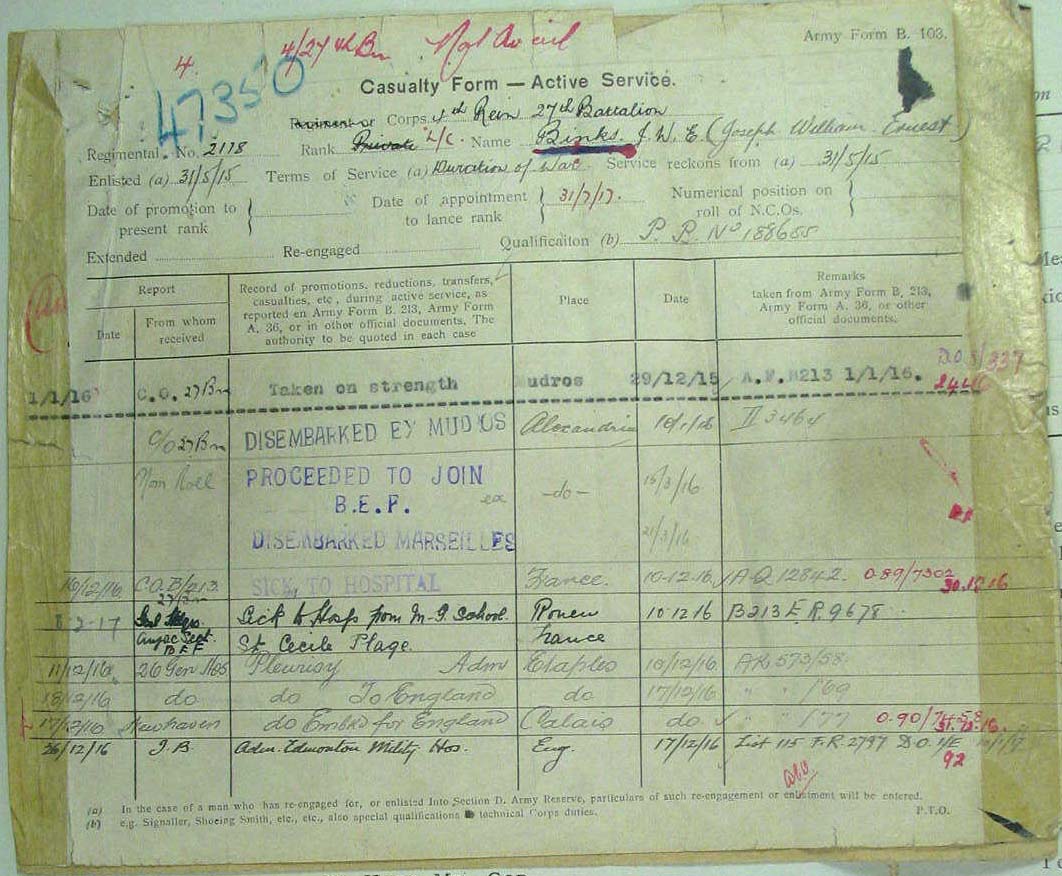 Army Form B. 103.
4. 4/27th Bn
47350
Casualty Form — Active Service.
Regiment or Corps 4th Rein 27th Battalion
Regimental No. 2178 Rank Private L/C. Name Binks J. W. E. (Joseph William Ernest)
Enlisted (a) 31/5/15 Terms of Service (a) Duration of War Service reckons from (a) 31/5/15
Date of promotion to present rank } Date of appointment to lance rank } 31/7/17. Numerical position on roll of N.C.Os. }
Extended Re-engaged Qualificaiton (b) P. B. No 188685
Report
Date
From whom received
Record of promotions, reductions, transfers, casualties, etc, during active service, as reported en Army Form B. 213, Army Form A. 36, or in other official documents. The authority to be quoted in each case
Place
Date
Remarks taken from Army Form B, 213, Army Form A. 36, or other official documents.
1/1/16 C.O. 27 Bn Taken on strength Mudros 29/12/15 A.F.B213 1/1/16.
C/O 27 Bn DISEMBARKED EX MUDROS Alexandria 10/1/16 II 3464
Nom Roll PROCEEDED TO JOIN —do— 15/3/16
B.E.F.
DISEMBARKED MARSEILLES 21/3/16
16/12/16 C.O. B/213 SICK TO HOSPITAL France. 10-12-16 A.Q. 12842. 0.89/7302
27 Bn 30.12.16
2-17 Sick to Hosp from M.G. School. Rouen 10 12 16 B213 F.R. 9678
Anzac Sect. B.E.F St. Cecile Plage. France
11/12/16 26 Gen Hos Pleurisy Adm Etaples 10/12/16 A.R. 573/58
18/12/16 do do To England do 17/12/16 " " /69
17/12/16 Newhaven do Embkd for England Calais do. " " /77
26/12/16 J.B Adm. Edmonton Military Hos. Eng. 17/12/16 List 115 F.R. 2797 D.O.
92
(a) In the case of a man who has re-engaged for, or enlisted Into Section D. Army Reserve, particulars of such re-engagement or enlistment will be entered.
(b) e.g. Signaller, Shoeing Smith, etc., etc., also special qualifications technical Corps duties.
P.T.O.